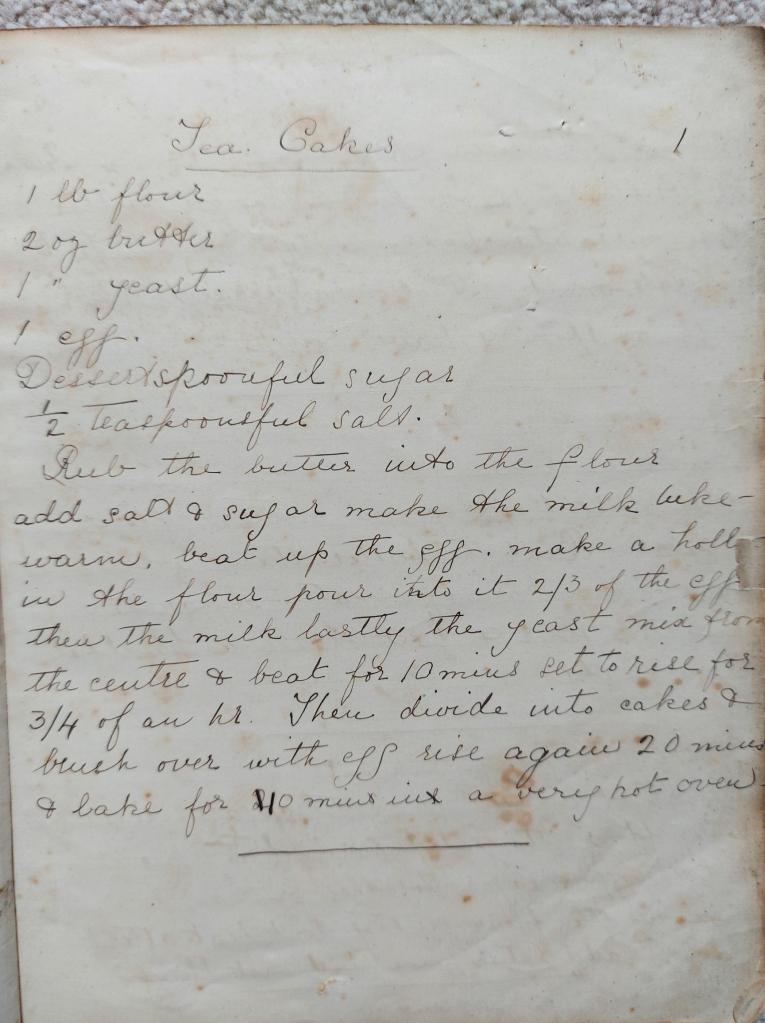 Tea. Cakes
1
1 lb flour
2 oz butter
1 " yeast.
1 egg.
Dessertspoonful sugar
1/2 Teaspoonsful salt.
Rub the butter into the flour
add salt & sugar make the milk luke-
warm, beat up the egg. make a holl
in the flour pour into it 2/3 of the egg
then the milk lastly the yeast mix from
the centre & beat for 10 mins set to rise for
3/4 of an hr. Then divide into cakes &
brush over with egg rise again 20 mins
& bake for mins in a very hot oven